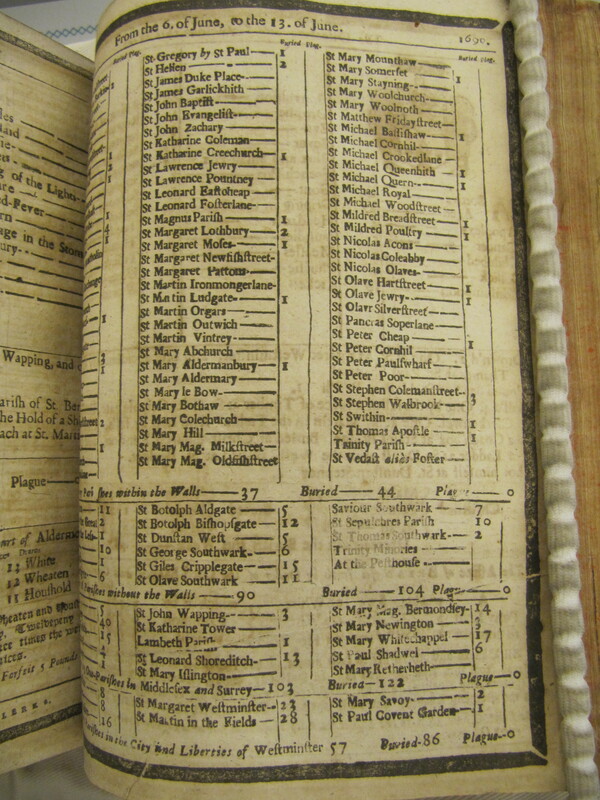 From the 6. of June, to the 13. of June. 1690.
Buried Plag.
Buried Plag.
Buried Plag.
St Gregory by St Paul 1
St Hellen 2
St James Duke Place
St James Garlickhith
St John Baptist
St John Evangelist
St John Zachary
St Katharine Coleman
St Katharine Creechurch 1
St Lawrence Jewry
St Lawrence Pountney
St Leonard Eastcheap
St Leonard Fosterlane
St Magnus Parish 1
St Margaret Lothbury 2
St Margaret Moses 1
St Margaret Newfishstreet
St Margaret Pattons
St Martin Ironmongerlane
St Martin Ludgate 1
St Martin Orgars
St Martin Outwich
St Martin Vintrey
St Mary Abchurch
St Mary Aldermanbury 1
St Mary Aldermary
St Mary le Bow
St Mary Bothaw
St Mary Colechurch
St Mary Hill
St Mary Mag. Milkstreet
St Mary Mag. Oldfishstreet
St Mary Mounthaw
St Mary Somerset
St Mary Stayning 1
St Mary Woolchurch
St Mary Woolnoth
St Matthew Fridaystreet
St Michael Bassishaw 1
St Michael Cornhil
St Michael Crookedlane
St Michael Queenhith 1
St Michael Quern 1
St Michael Royal
St Michael Woodstreet
St Mildred Breadstreet 1
St Mildred Poultry 1
St Nicolas Acons
St Nicolas Coleabby
St Nicolas Olaves
St Olave Hartstreet 1
St Olave Jewry 1
St Olave Silverstreet
St Pancras Soperlane
St Peter Cheap
St Peter Cornhil 1
St Peter Paulswharf
St Peter Poor
St Stephen Colemanstreet 3
St Stephen Walbrook
St Swithin 1
St Thomas Apostle 1
Trinity Parish 1
St Vedast alias Foster
within the Walls 37 Buried 44 Plague 0
St Botolph Aldgate 5
St Botolph Bishopsgate 12
St Dunstan West 5
St George Southwark 6
St Giles Cripplegate 15
St Olave Southwark 11
Saviour Southwark 7
St Sepulchres Parish 10
St Thomas Southwark 2
Trinity Minories
At the Pesthouse
Parishes without the Walls 90 Buried 104 Plague 0
St John Wapping 3
St Katharine Tower
Lambeth Parish 1
St Leonard Shoreditch 13
St Mary Islington
St Mary Mag. Bermondsey 14
St Mary Newington 3
St Mary Whitechappel 17
St Paul Shadwel 6
St Mary Retherheth
Out-Parishes in Middlesex and Surrey 103 Buried 122 Plague 0
St Margaret Westminster 23
St Martin in the Fields 28
St Mary Savoy 2
St Paul Covent Garden 1
in the City and Liberties of Westminster 57 Buried 86 Plague 0
of the Lights
Wapping, and
the Hold of a
Plague
White
Wheaten
Houshold